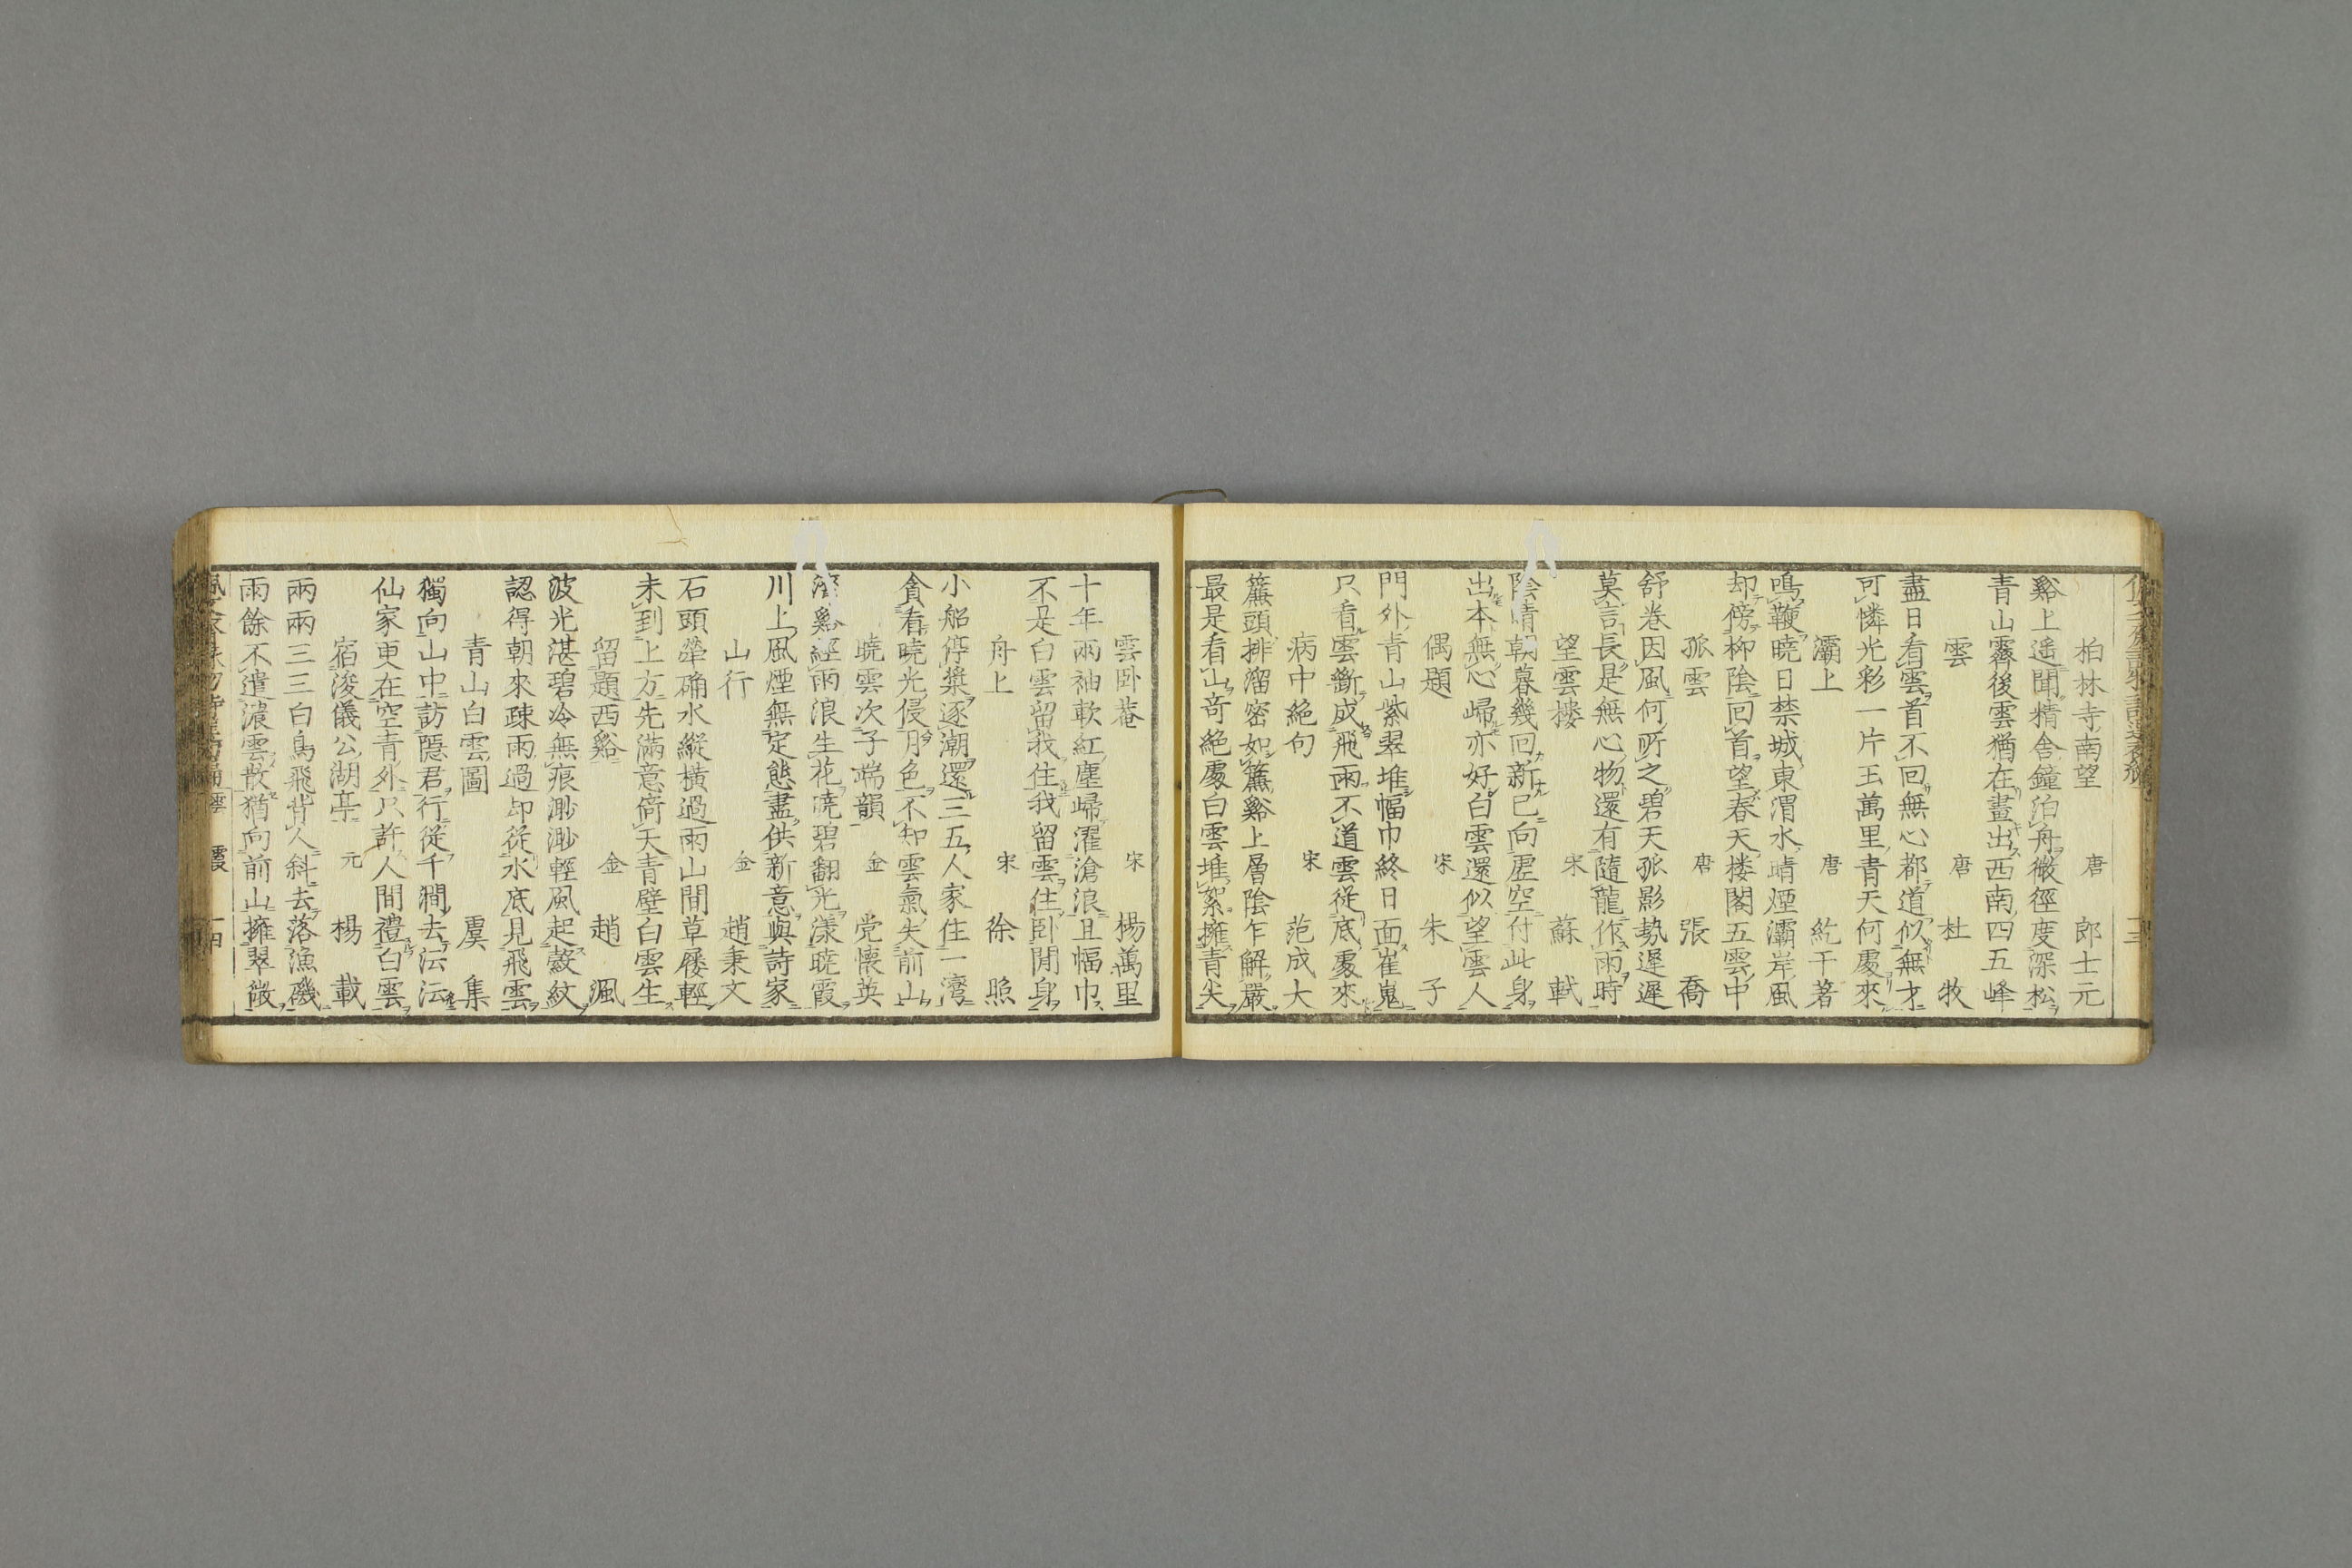 柏林寺南望 唐 郎士元
谿上遥聞精舍鐘泊舟微徑度深松
青山霽後雲猶在畫出西南四五峰
雲 唐 杜牧
盡日看雲首不回無心都道似無才
可憐光彩一片玉萬里青天何處來
灞上 唐 紇干著
鳴鞭曉日禁城東渭水晴煙灞岸風
却傍柳陰回首望春天楼閣五雲中
孤雲 唐 張喬
舒卷因風何所之碧天孤影勢遲遲
莫言長是無心物還有隨龍作雨時
望雲楼 宋 蘇軾
陰晴朝暮幾回新已向虛空付此身
出本無心歸亦好白雲還似望雲人
偶題 宋 朱子
門外青山紫翠堆幅巾終日面崔嵬
只看雲斷成飛雨不道雲從底處來
病中絶句 宋 范成大
簷頭排溜密如簾谿上層陰乍解嚴
最是看山奇絶處白雲堆絮擁青尖
雲卧菴 宋 楊萬里
十年兩袖軟紅塵歸濯滄浪且幅巾
不是白雲留我住我留雲住卧閒身
舟上 宋 徐照
小船停槳逐潮還三五人家住一湾
貪看曉光侵月色不知雲氣失前山
曉雲次子端韻 金 党懷英
谿經雨浪生花曉碧翻光漾曉霞
川上風煙無定態盡供新意與詩家
山行 金 趙秉文
石頭犖确水縱橫過雨山間草屨輕
未到上方先滿意倚天青壁白雲生
留題西谿 金 趙渢
波光湛碧冷無痕渺渺輕風起縠紋
認得朝來疎雨過却從水底見飛雲
青山白雲圖 虞集
獨向山中訪隱君行從千澗去沄沄
仙家更在空青外只許人間禮白雲
宿浚儀公湖亭 元 楊載
兩兩三三白鳥飛背人斜去落漁磯
雨餘不遣濃雲散猶向前山擁翠微